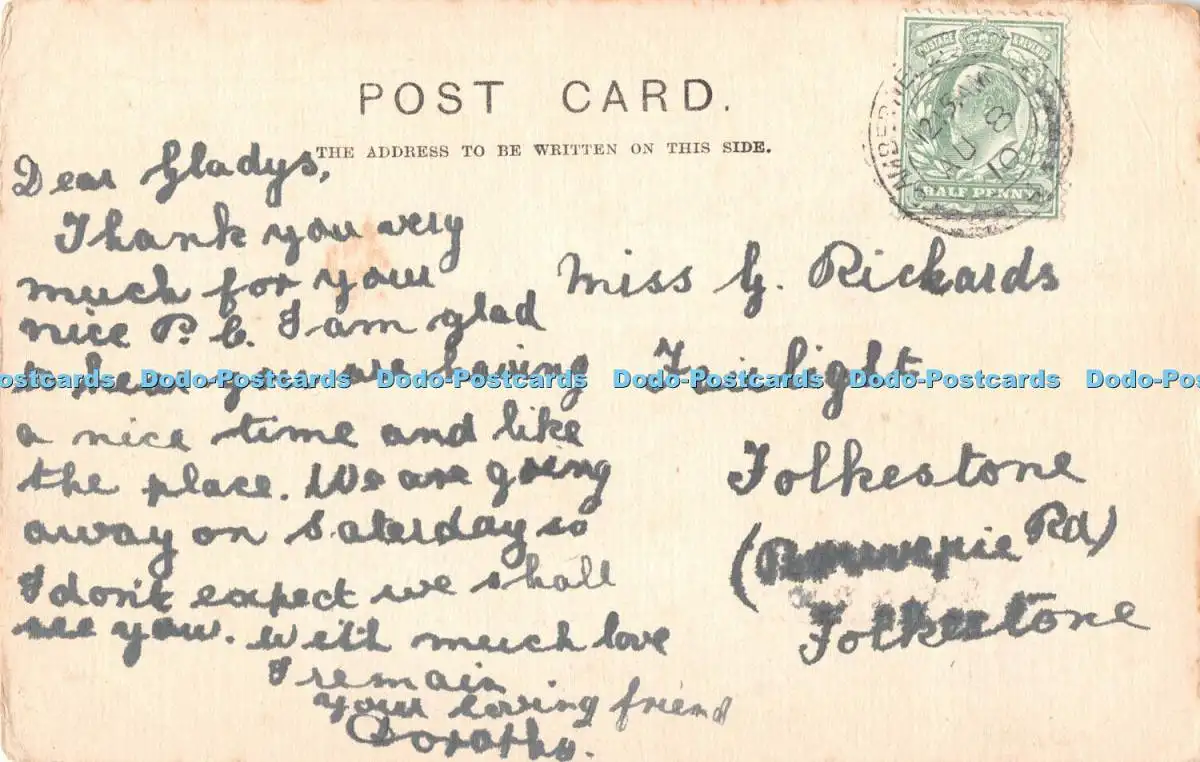 POST CARD.
THE ADDRESS TO BE WRITTEN ON THIS SIDE.
POSTAGE & REVENUE
HALF PENNY
12.15 AM
AU 8
10
Dear Gladys,
Thank you very
much for your
nice P. C. I am glad
to hear you are having
a nice time and like
the place. We are going
away on Saterday so
I don't expect we shall
see you. With much love
I remain
your loving friend
Dorothy.
Miss G. Rickards
Fairlight
Folkestone
( Rd)
Folkestone
Dodo-Postcards Dodo-Postcards Dodo-Postcards Dodo-Postcards Dodo-Postcards Dodo-Postcards